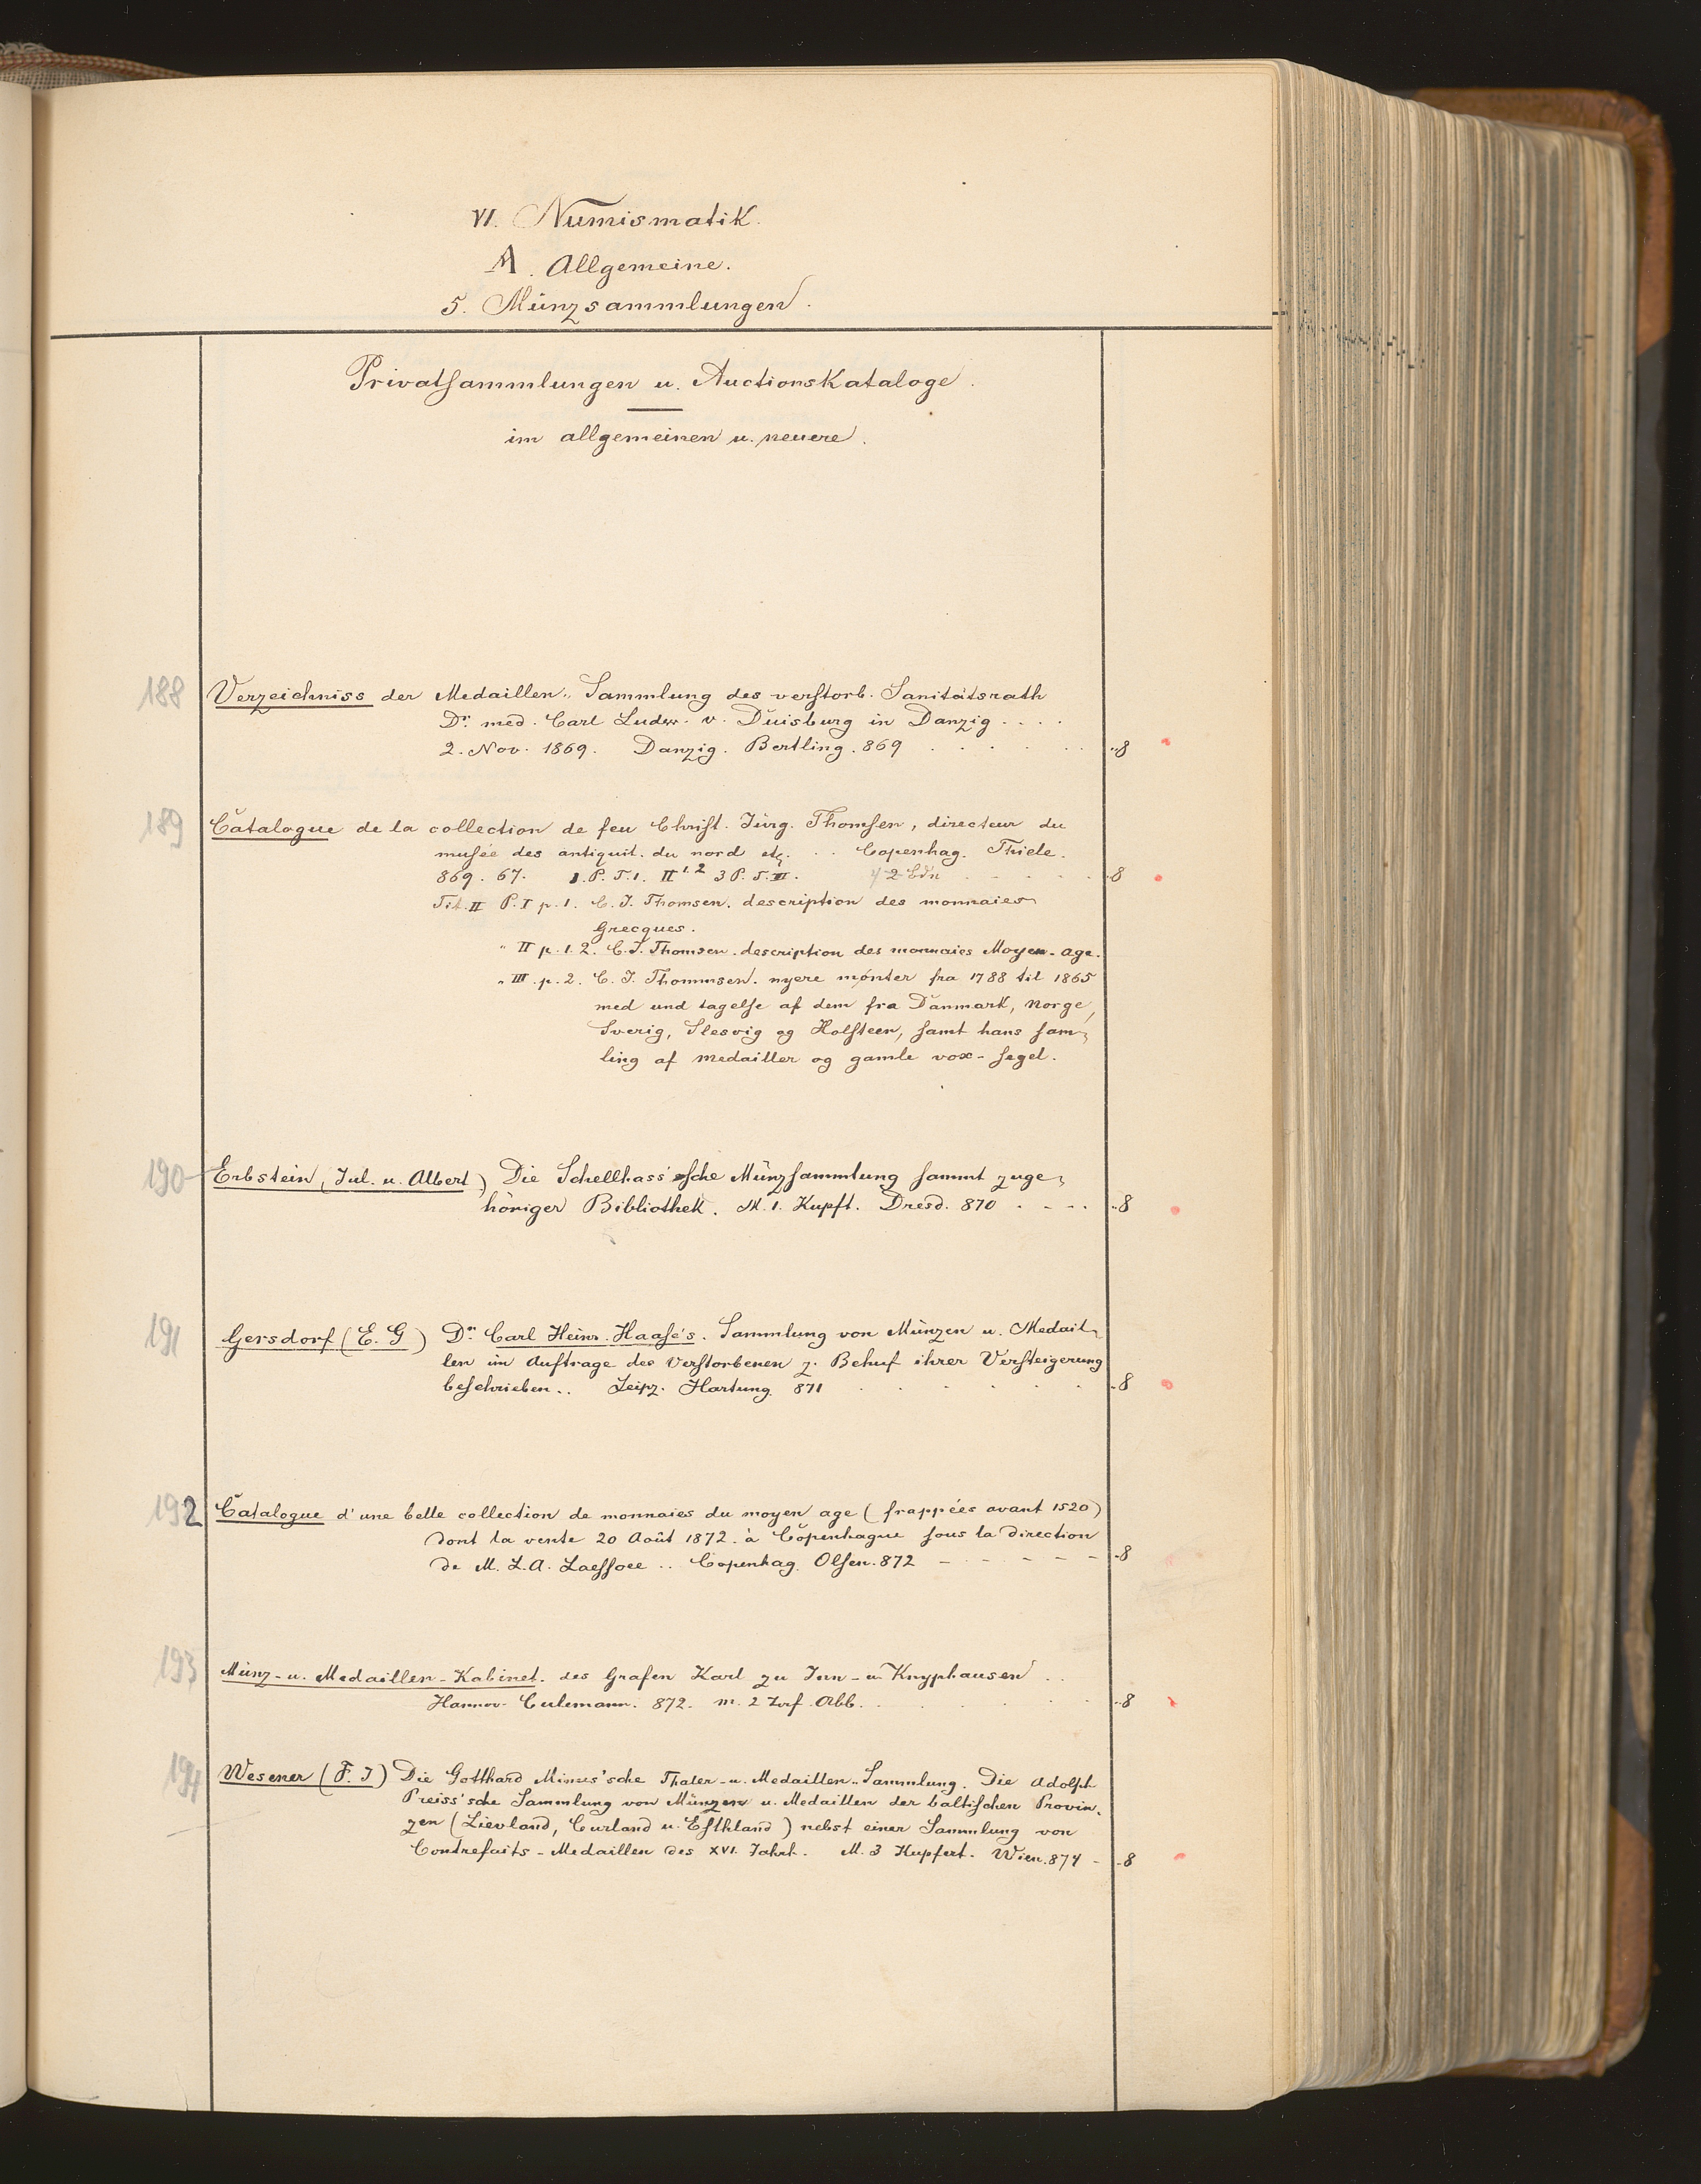 VI. Numismatik.
A. Allgemeine.
5. Münzsammlungen.
Privatsammlungen u. Auctionskataloge.
im allgemeinen u. neuere.
188 Verzeichniss der Medaillen-Sammlung des verstorb. Sanitätsrath
Dr. med. Carl Ludw. v. Duisburg in Danzig . . . .
2. Nov. 1869. Danzig. Bertling. 869 . . . . . . 8
189 Catalogue de la collection de feu Christ. Jürg. Thomsen, directeur du
musée des antiquit. du nord etc. . . Copenhag. Thiele.
869. 67. 1. P. T. 1. II 1.2 3 P. T. III. 2 Bdn . . . . . 8
Tit. II P. I p. 1. C. J. Thomsen. description des monnaies
Grecques.
" II p. 1. 2. C. J. Thomsen. description des monnaies Moyen-age.
" III. p. 2. C. J. Thommsen. nyere mønter fra 1788 til 1865
med und tagelse af dem fra Danmark, Norge,
Sverig, Slesvig og Holsteen, samt hans sam-
ling af medailler og gamle vox-segel.
190 Erbstein (Jul. u. Albert) Die Schellhass'sche Münzsammlung sammt zuge-
höriger Bibliothek. M. 1. Kupft. Dresd. 870 . . . . 8
191 Gersdorf (E. G) Dr. Carl Heinr. Haase's. Sammlung von Münzen u. Medail-
len im Auftrage des Verstorbenen z. Behuf ihrer Versteigerung
beschrieben.. Leipz. Hartung. 871 . . . . . . 8
192 Catalogue d'une belle collection de monnaies du moyen age (frappées avant 1520)
dont la vente 20 Août 1872. à Copenhague sous la direction
de M. L. A. Laessoee .. Copenhag. Olsen. 872 - - - - - - 8
193 Münz- u. Medaillen-Kabinet. des Grafen Karl zu Inn- u Knyphausen . .
Hannov. Culemann. 872. m. 2 Abb. . . . . . . 8
194 Wesener (F. J) Die Gotthard Minus'sche Thaler- u. Medaillen-Sammlung. Die Adolph
Preiss'sche Sammlung von Münzen u. Medaillen der baltischen Provin-
zen (Lievland, Curland u. Esthland) nebst einer Sammlung von
Contrefaits-Medaillen des XVI. Jahrh. M. 3 Kupfert. Wien. 874 - 8